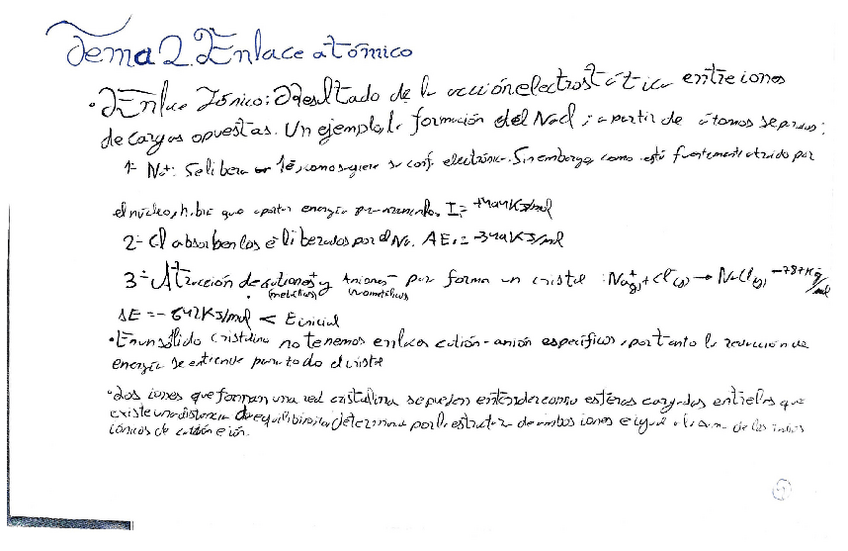 Tema 2. Enlace atómico
• Enlace Iónico: Resultado de la acción electrostática entre iones
de cargas opuestas. Un ejemplo, la formación del NaCl, a partir de átomos separados:
1- Na+: Se libera 1é, como sugiere su conf. electrónica. Sin embargo, como está fuertemente atraído por
el núcleo, habrá que aportar energía para
2- Cl absorben los é liberados por el Na.
3- Atracción de cationes+ y aniones- para forma un cristal : Na+(g) + Cl-(g) → NaCl(s)
(metálicos) (no metálicos)
ΔE = -642KJ/mol < E inicial
• En un sólido cristalino no tenemos enlaces catión-anión específicos, por tanto la reducción de
energía se extiende para todo el cristal
• Los iones que forman una red cristalina se pueden entender como esferas cargadas entre las que
existe una distancia de equilibrio determina por la estructura de ambos iones e igual a la suma de los radios
iónicos de catión